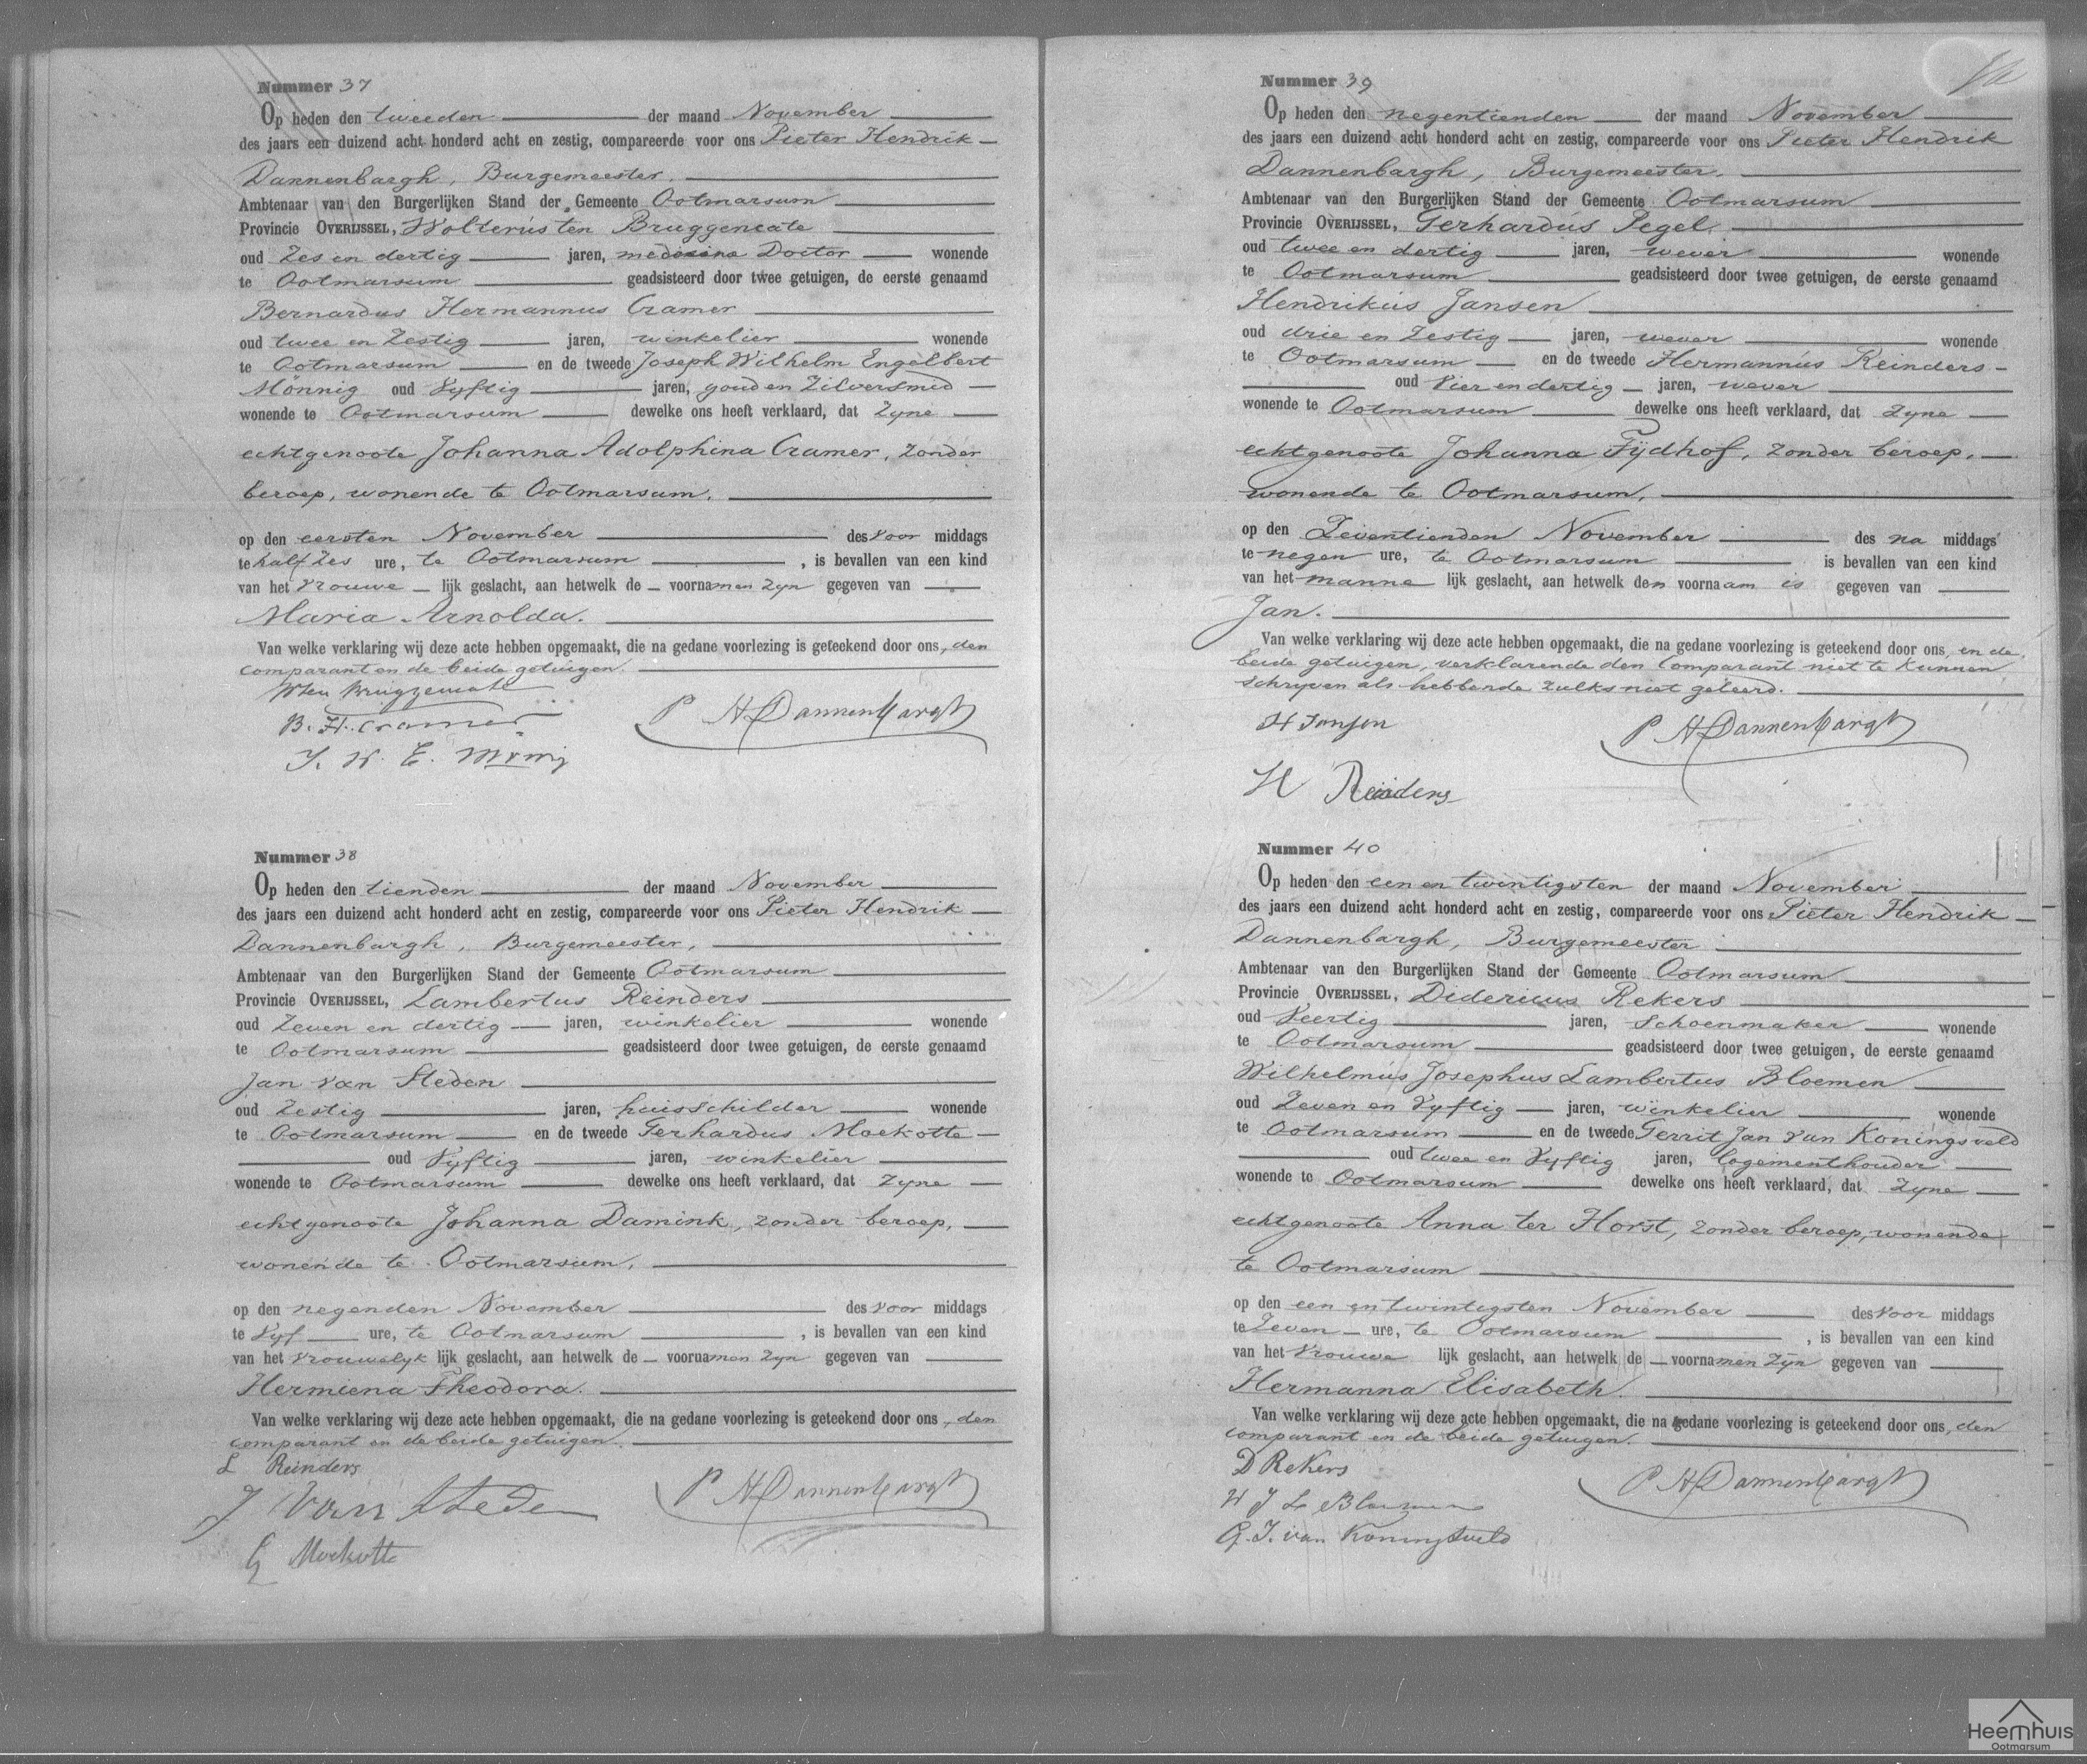 Nummer 37
Op heden den tweeden der maand November
des jaars een duizend acht honderd acht en zestig, compareerde voor ons Pieter Hendrik
Dannenbargh, Burgemeester.
Ambtenaar van den Burgerlijken Stand der Gemeente Ootmarsum
Provincie OVERIJSSEL, Wolterus ten Bruggencate
oud Zes en dertig jaren, medicina Doctor wonende
te Ootmarsum geadsisteerd door twee getuigen, de eerste genaamd
Bernardus Hermannus Cramer
oud twee en Zestig jaren, winkelier wonende
te Ootmarsum en de tweede Joseph Wilhelm Engelbert
Mönnig oud Vyftig jaren, goud en Zilversmid
wonende te Ootmarsum dewelke ons heeft verklaard, dat Zyne
echtgenoote Johanna Adolphina Cramer, Zonder
beroep, wonende te Ootmarsum,
op den eersten November des voor middags
te half Zes ure, te Ootmarsum , is bevallen van een kind
van het vrouwe lijk geslacht, aan hetwelk de voornamen Zyn gegeven van
Maria Arnolda.
Van welke verklaring wij deze acte hebben opgemaakt, die na gedane voorlezing is geteekend door ons, den
comparant en de beide getuigen.
WTen Bruggencate
B. H. Cramer
P H Dannenbargh
J. W. E. Mönnig
Nummer 38
Op heden den tienden der maand November
des jaars een duizend acht honderd acht en zestig, compareerde voor ons Pieter Hendrik
Dannenbargh, Burgemeester,
Ambtenaar van den Burgerlijken Stand der Gemeente Ootmarsum
Provincie OVERIJSSEL, Lambertus Reinders
oud Zeven en dertig jaren, winkelier wonende
te Ootmarsum geadsisteerd door twee getuigen, de eerste genaamd
Jan van Steden
oud Zestig jaren, huisschilder wonende
te Ootmarsum en de tweede Gerhardus Moekotte
oud Vyftig jaren, winkelier
wonende te Ootmarsum dewelke ons heeft verklaard, dat Zyne
echtgenoote Johanna Damink, zonder beroep,
wonende te Ootmarsum,
op den negenden November des voor middags
te Vyf ure, te Ootmarsum , is bevallen van een kind
van het vrouwelyk lijk geslacht, aan hetwelk de voornamen Zyn gegeven van
Hermiena Theodora.
Van welke verklaring wij deze acte hebben opgemaakt, die na gedane voorlezing is geteekend door ons, den
comparant en de beide getuigen.
L Reinders
J van Steden
P H Dannenbargh
G Moekotte
Nummer 39
Op heden den negentienden der maand November
des jaars een duizend acht honderd acht en zestig, compareerde voor ons Pieter Hendrik
Dannenbargh, Burgemeester.
Ambtenaar van den Burgerlijken Stand der Gemeente Ootmarsum
Provincie OVERIJSSEL, Gerhardus Pegel
oud twee en dertig jaren, wever wonende
te Ootmarsum geadsisteerd door twee getuigen, de eerste genaamd
Hendrikus Jansen
oud drie en Zestig jaren, wever wonende
te Ootmarsum en de tweede Hermannus Reinders
oud Vier en dertig jaren, wever
wonende te Ootmarsum dewelke ons heeft verklaard, dat Zyne
echtgenoote Johanna Tijdhof, zonder beroep,
wonende te Ootmarsum,
op den Zeventienden November des na middags
te negen ure, te Ootmarsum is bevallen van een kind
van het manne lijk geslacht, aan hetwelk den voornaam is gegeven van
Jan.
Van welke verklaring wij deze acte hebben opgemaakt, die na gedane voorlezing is geteekend door ons, en de
beide getuigen, verklarende den Comparant niet te kunnen
schryven als hebbende zulks niet geleerd.
H Jansen
P H Dannenbargh
H Reinders
Nummer 40
Op heden den een en twintigsten der maand November
des jaars een duizend acht honderd acht en zestig, compareerde voor ons Pieter Hendrik
Dannenbargh, Burgemeester
Ambtenaar van den Burgerlijken Stand der Gemeente Ootmarsum
Provincie OVERIJSSEL, Didericus Rekers
oud Veertig jaren, Schoenmaker wonende
te Ootmarsum geadsisteerd door twee getuigen, de eerste genaamd
Wilhelmus Josephus Lambertus Bloemen
oud Zeven en Vyftig jaren, winkelier wonende
te Ootmarsum en de tweede Gerrit Jan van Koningsveld
oud twee en Vyftig jaren, logementhouder
wonende te Ootmarsum dewelke ons heeft verklaard, dat Zyne
echtgenoote Anna ter Horst, zonder beroep, wonende
te Ootmarsum
op den een en twintigsten November des voor middags
te Zeven ure, te Ootmarsum , is bevallen van een kind
van het Vrouwe lijk geslacht, aan hetwelk de voornamen Zyn gegeven van
Hermanna Elisabeth.
Van welke verklaring wij deze acte hebben opgemaakt, die na gedane voorlezing is geteekend door ons, den
comparant en de beide getuigen.
D Rekers
P H Dannenbargh
W J L Bloemen
G. J. van Koningsveld
Heemhuis
Ootmarsum